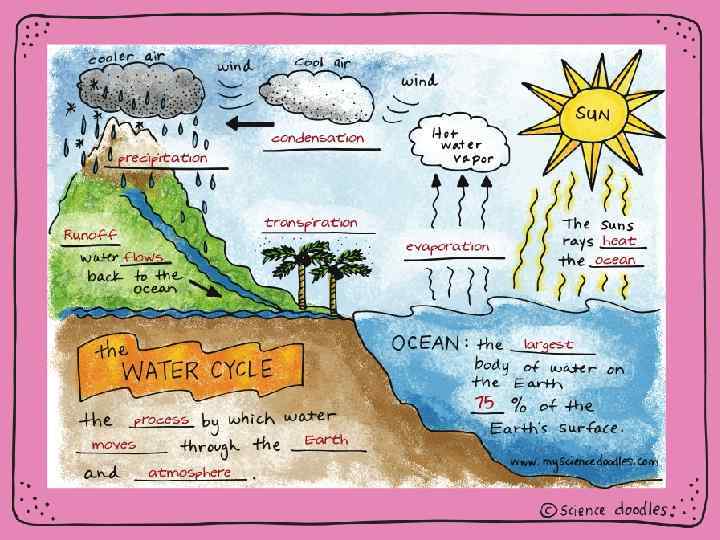 cooler air
wind
cool air
wind
SUN
condensation
Hot
water
vapor
precipitation
transpiration
Runoff
water flows
back to the
ocean
evaporation
The suns
rays heat
the ocean
the
WATER CYCLE
the process by which water
moves through the Earth
and atmosphere.
OCEAN: the largest
body of water on
the Earth
75 % of the
Earth's surface.
www.mysciencedoodles.com
© Science doodles.